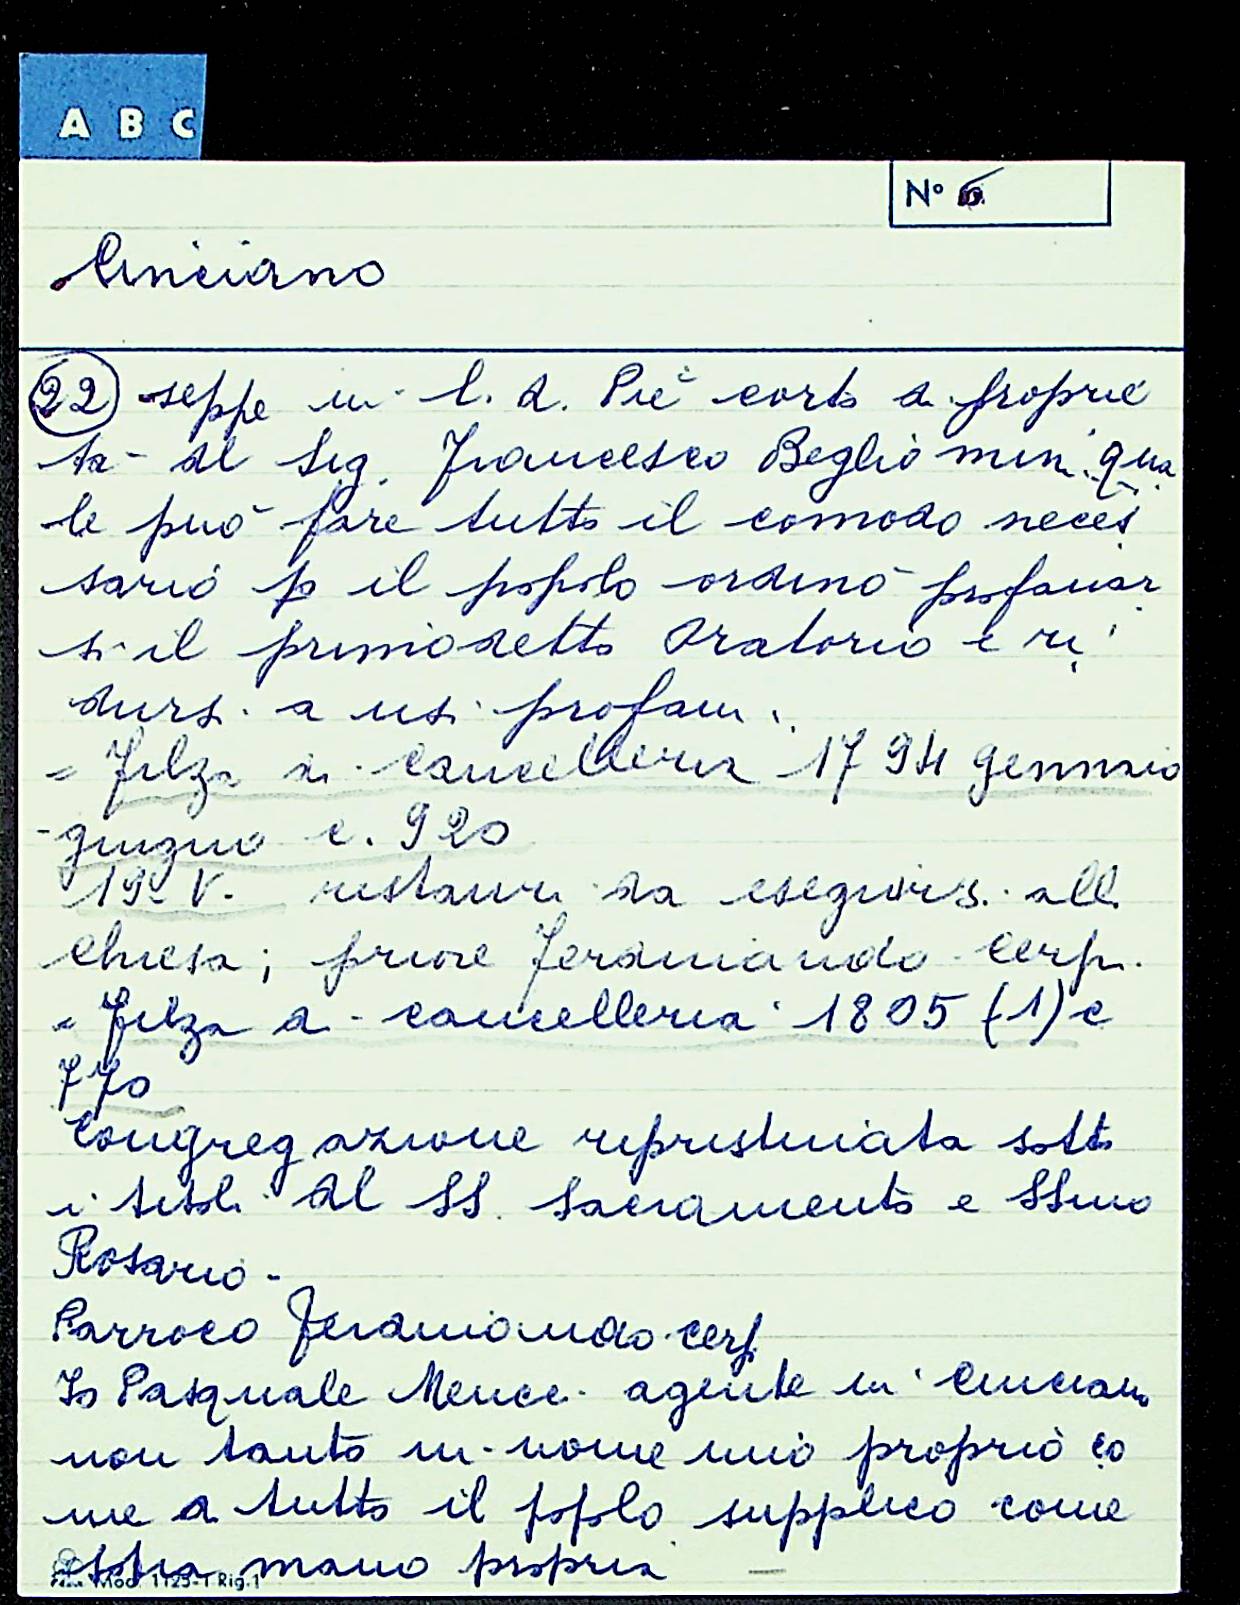 A B C
N° 6
Cinciano
22 seppe in l. d. Piè corto di proprie
tà del Sig. Francesco Beglio min. qua
le può fare tutto il comodo neces
sario p il popolo ordinò profanar
si il primodetto Oratorio e ri
dursi a usi profani.
= Filza di cancelleria 1794 gennaio
-giugno c. 920
19 V. restauri da eseguirsi all
chiesa; priore Ferdinando Cerpi.
= Filza di cancelleria 1805 (1) c
770
Congregazione ripristinata sotto
i titoli del SS. Sacramento e SSmo
Rosario -
Parroco Ferdinando Cerpi
Io Pasquale Mencci agente in Cinciano
non tanto in nome mio proprio co
me di tutto il popolo supplico come
sopra mano propria
Mod. 1125-1 Rig.1